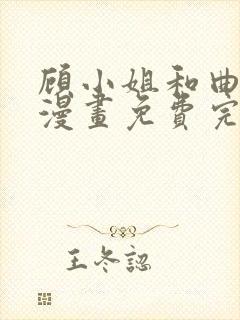 顾小姐和曲
漫畫免費完
王冬認